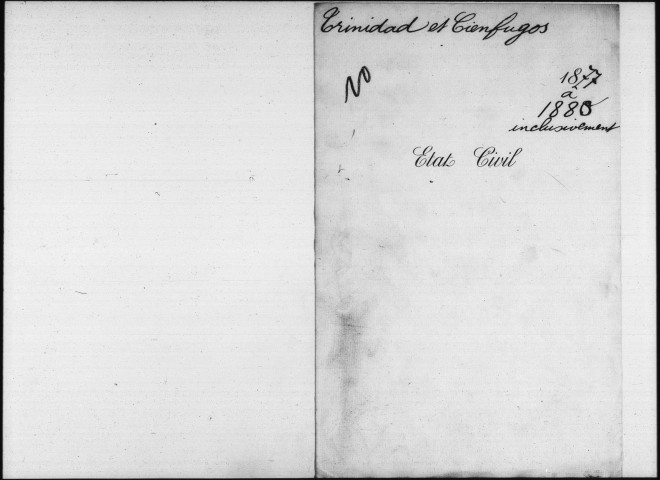 Trinidad et Cienfugos
1877
à
1880
inclusivement
Etat Civil